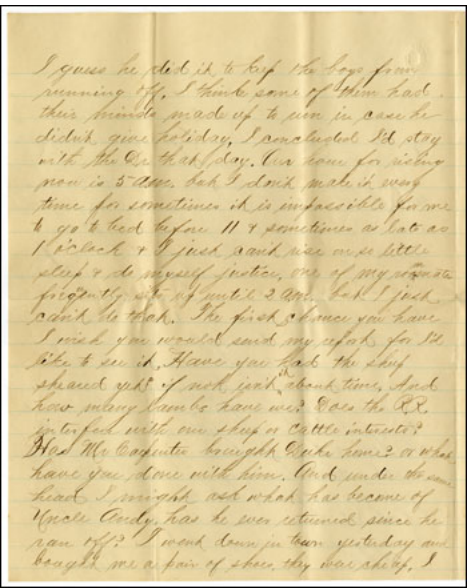 I guess he did it to keep the boys from
running off. I think some of them had
their minds made up to run in case he
didn't give holiday, I concluded I'd stay
with the Dr. that day. Our hour for rising
now is 5 am. but I don't make it every
time for sometimes it is impossible for me
to go to bed before 11 & sometimes as late as
1 o'clock & I just can't rise on so little
sleep & do myself justice. one of my
frequently sits up until 2 am. but I just
can't do that. The first chance you have
I wish you would send my report for I'd
like to see it. Have you had the sheep
sheared yet? if not isn't it about time. And
how many lambs have we? Does the R.R.
interfere with our sheep or cattle interests?
Has Mr Carpenter brought Duke home? or what
have you done with him. And under the same
head I might ask what has become of
Uncle Andy, has he ever returned since he
ran off? I went down in town yesterday and
bought me a pair of shoes, they was cheap. I